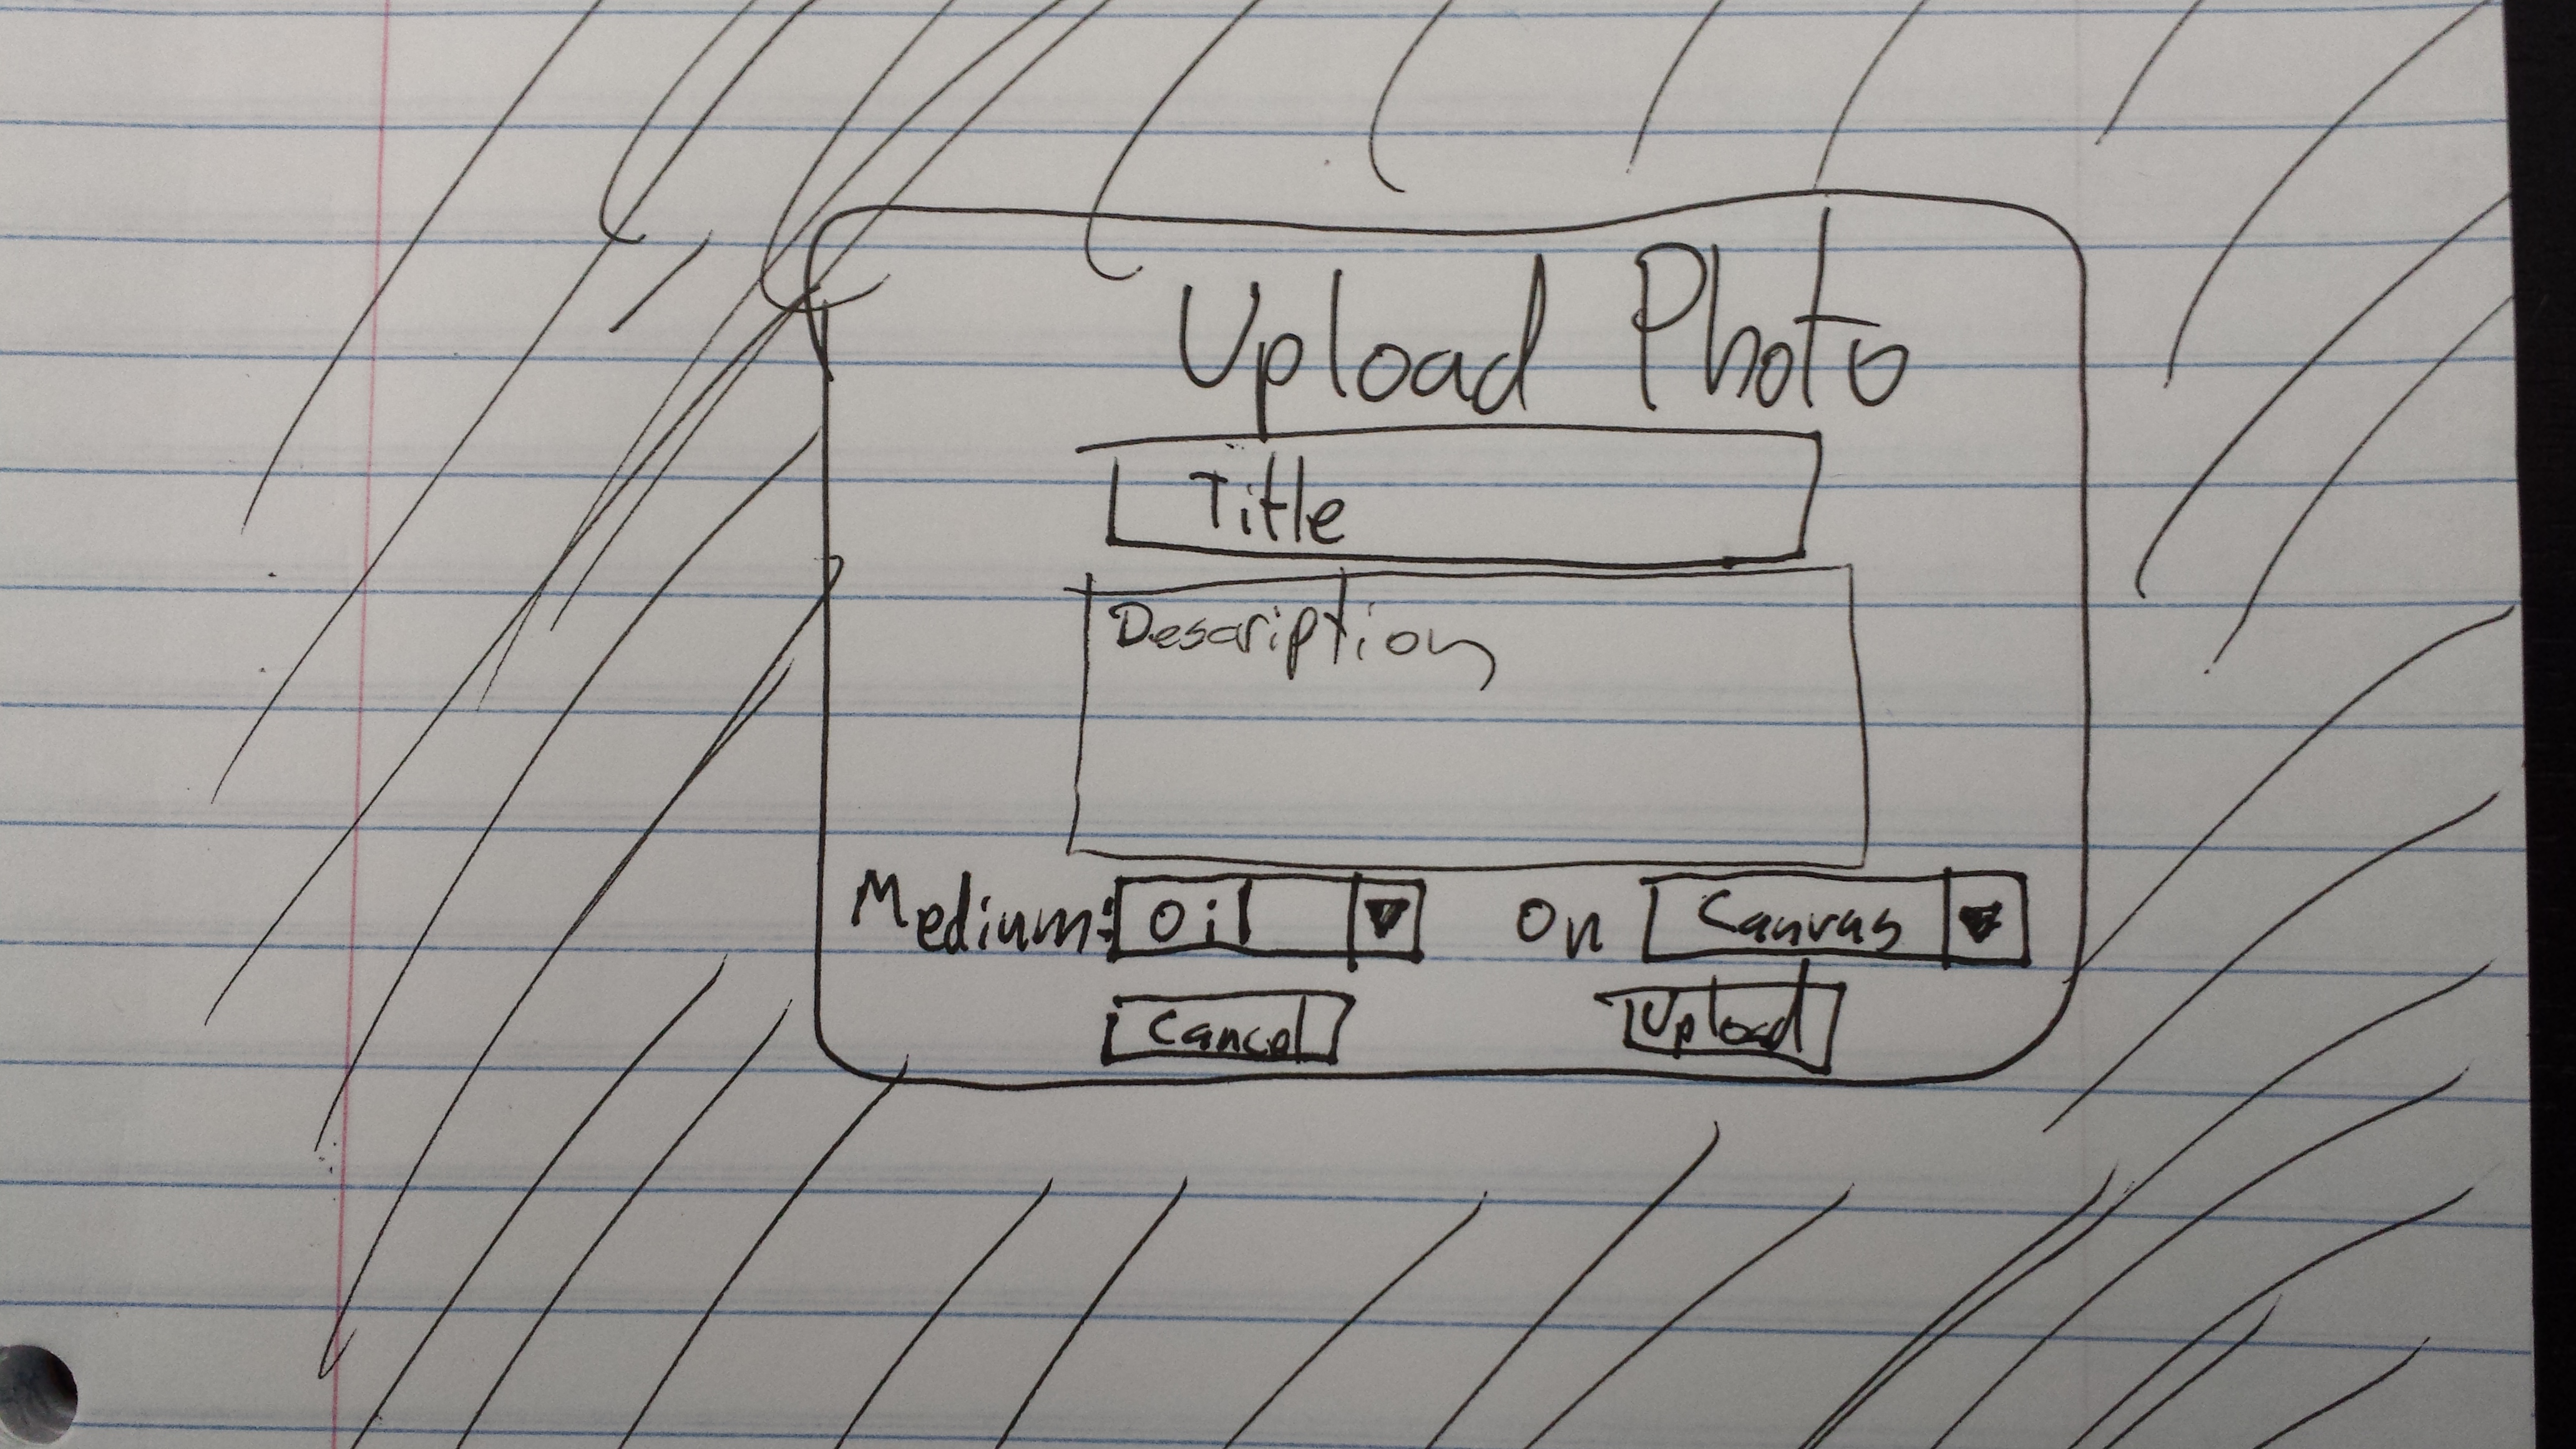 Upload Photo
Title
Description
Medium: Oil on Canvas
Cancel Upload